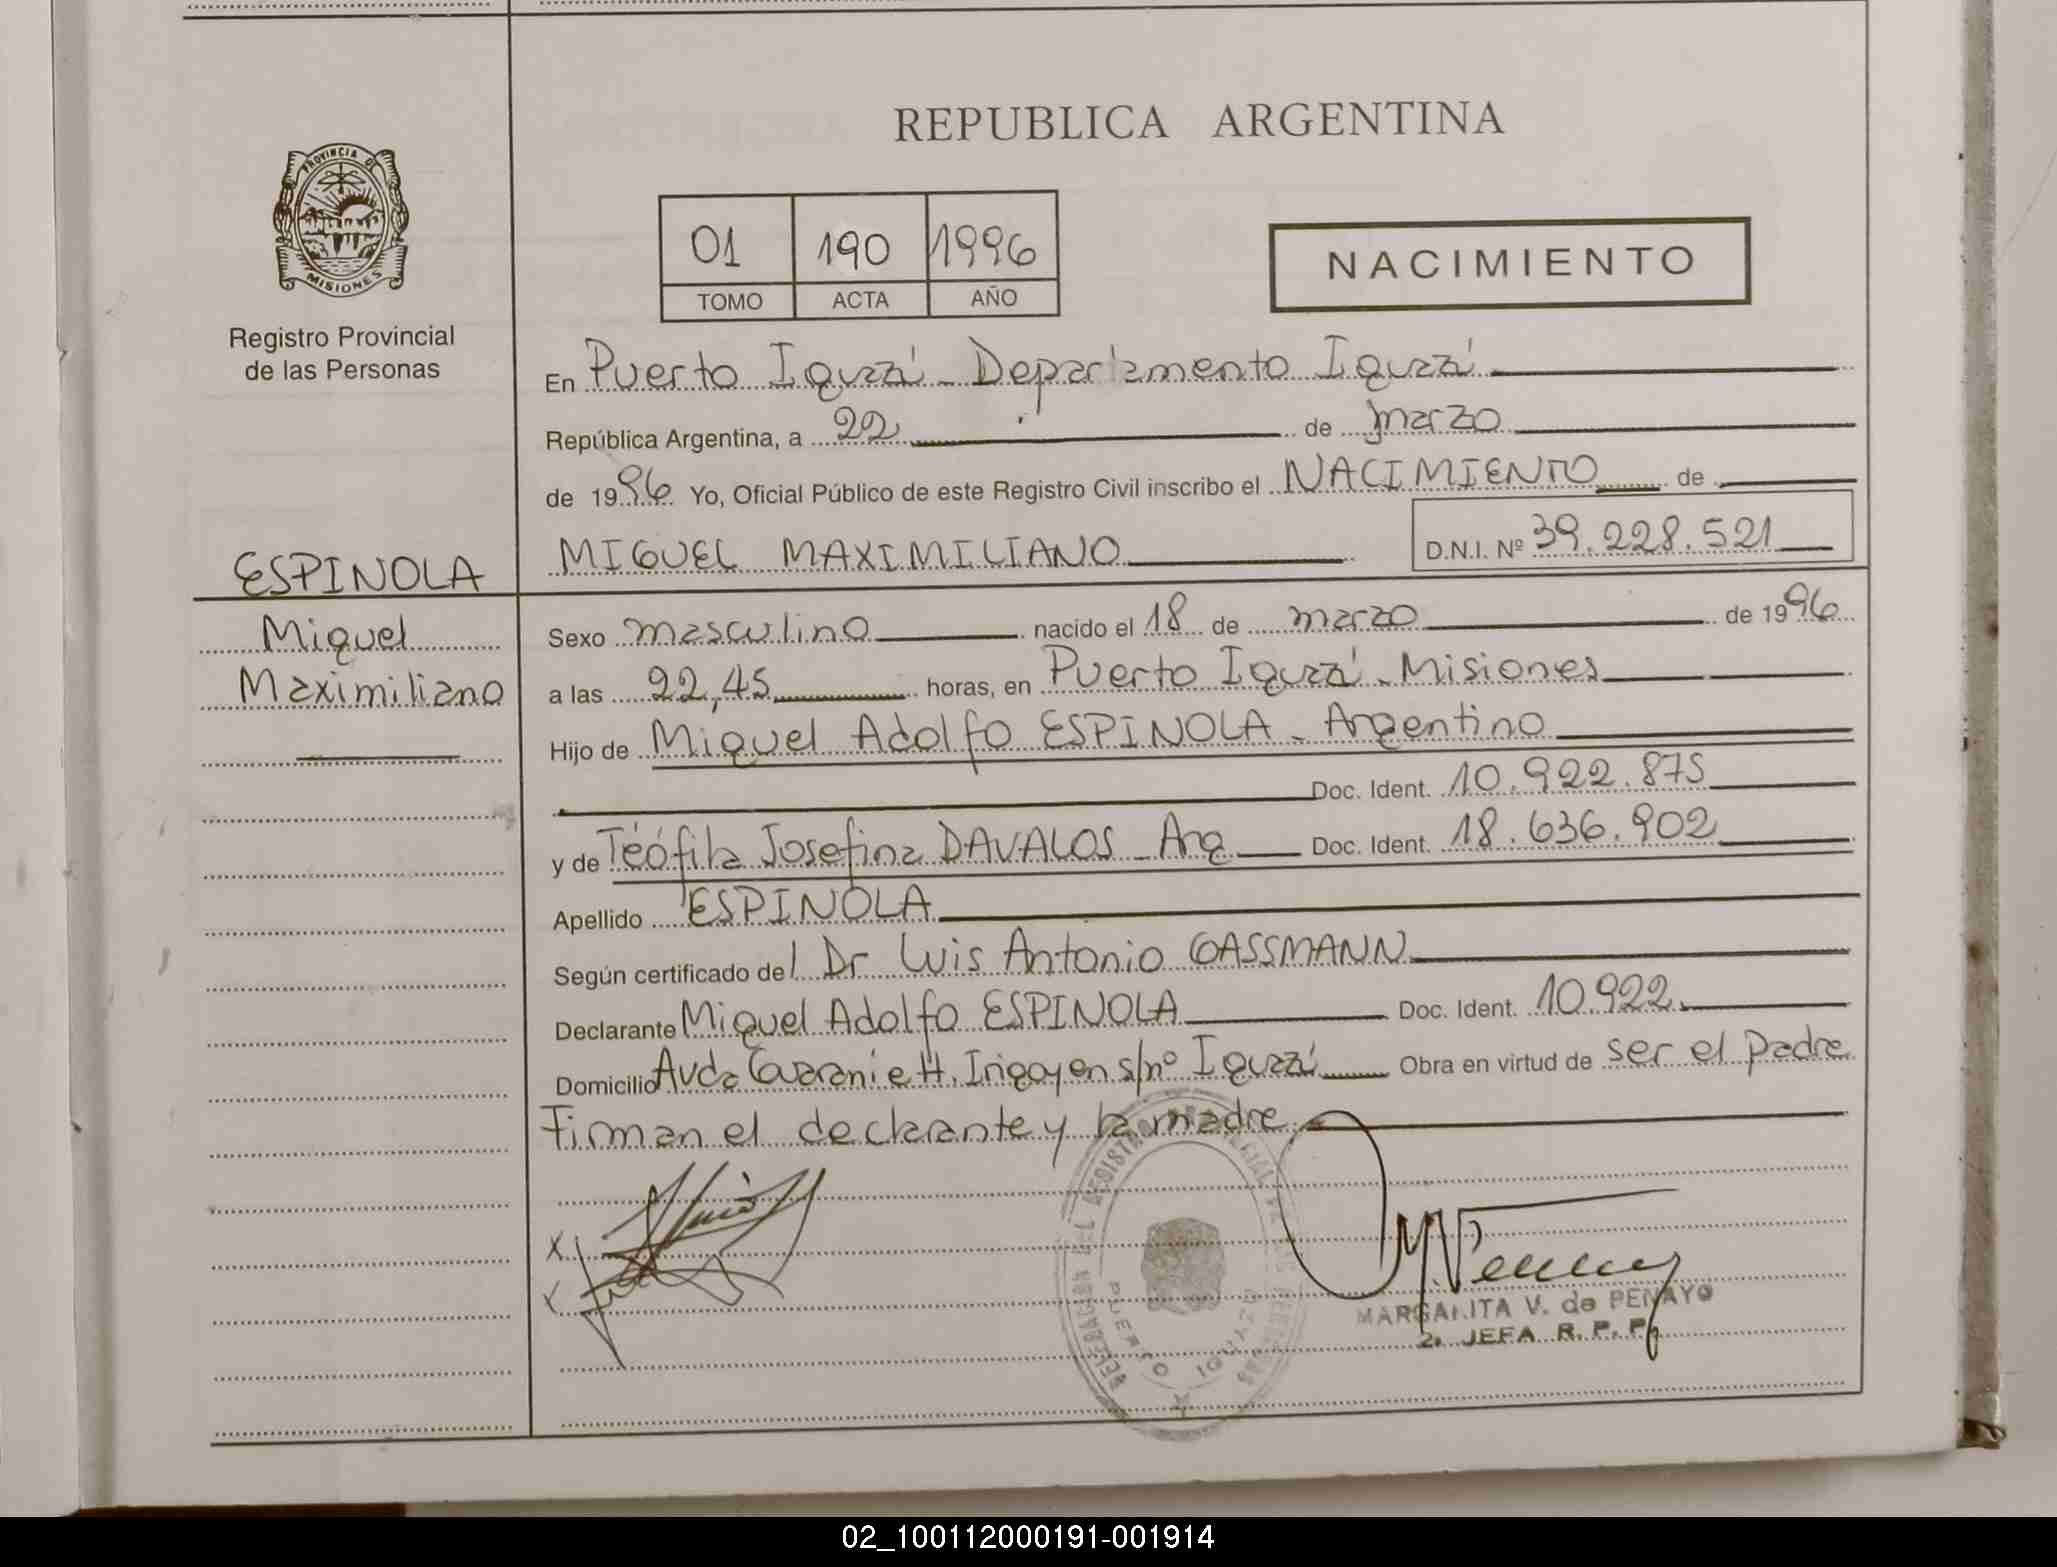 REPUBLICA ARGENTINA
PROVINCIA DE
MISIONES
Registro Provincial
de las Personas
01 190 1996
TOMO ACTA AÑO
NACIMIENTO
En Puerto Iguazú - Departamento Iguazú
República Argentina, a 22 de marzo
de 1996 Yo, Oficial Público de este Registro Civil inscribo el NACIMIENTO de
MIGUEL MAXIMILIANO D.N.I. Nº 39.228.521
ESPINOLA
Miguel
Maximiliano
Sexo masculino nacido el 18 de marzo de 1996
a las 22,45 horas, en Puerto Iguazú - Misiones
Hijo de Miguel Adolfo ESPINOLA - Argentino
Doc. Ident. 10.922.875
y de Teófila Josefina DAVALOS - Arg Doc. Ident. 18.636.902
Apellido ESPINOLA
Según certificado del Dr Luis Antonio GASSMANN
Declarante Miguel Adolfo ESPINOLA Doc. Ident. 10.922.
Domicilio Avda Guaraní e H. Irigoyen s/nº Iguazú Obra en virtud de ser el padre
Firman el declarante y la madre
X
X
PUERTO IGUAZU
MARGARITA V. de PENAYO
2. JEFA R. P. P.
02_100112000191-001914